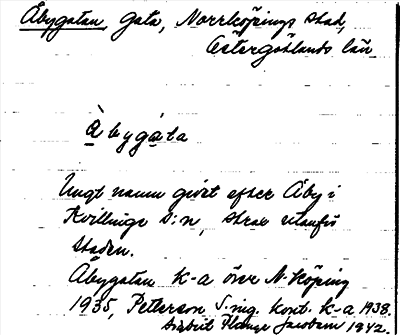 Åbygatan, gata, Norrköpings stad,
Östergötlands län
Åbygata
Ungt namn givet efter Åby i
Kvillinge s:n, strax utanför
staden.
Åbygatan K-a över N-köping
1935, Petterson S. ing. kont. K-a 1938.
Jacobson 1942.